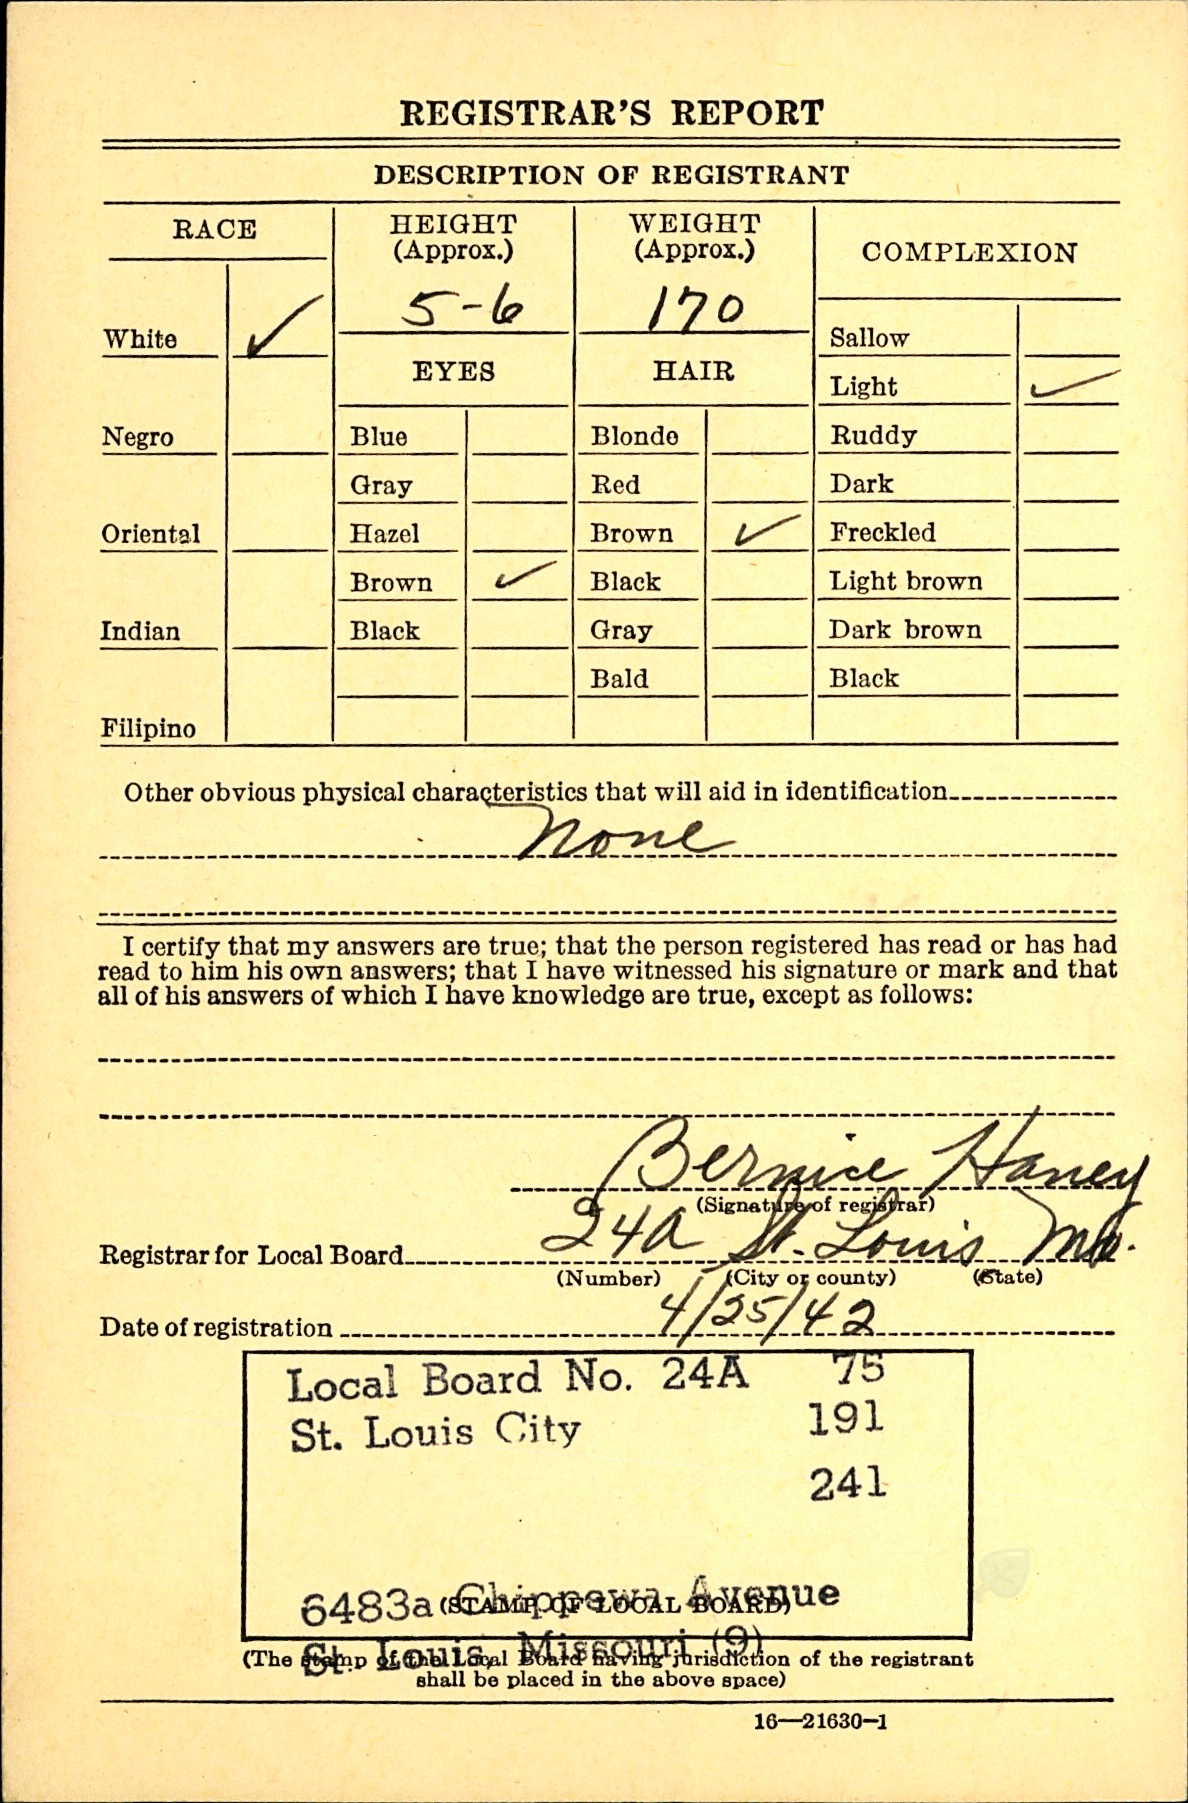 REGISTRAR'S REPORT
DESCRIPTION OF REGISTRANT
RACE
HEIGHT
(Approx.)
WEIGHT
(Approx.)
COMPLEXION
5-6
170
White ✓
Sallow
EYES
HAIR
Light ✓
Negro
Blue
Blonde
Ruddy
Gray
Red
Dark
Oriental
Hazel
Brown ✓
Freckled
Brown ✓
Black
Light brown
Indian
Black
Gray
Dark brown
Bald
Black
Filipino
Other obvious physical characteristics that will aid in identification
None
I certify that my answers are true; that the person registered has read or has had
read to him his own answers; that I have witnessed his signature or mark and that
all of his answers of which I have knowledge are true, except as follows:
Bernice Haney
(Signature of registrar)
Registrar for Local Board 24A St. Louis Mo.
(Number) (City or county) (State)
Date of registration 4/25/42
Local Board No. 24A 75
St. Louis City 191
241
6483a Chippewa Avenue
(STAMP OF LOCAL BOARD)
St. Louis, Missouri (9)
(The stamp of the Local Board having jurisdiction of the registrant
shall be placed in the above space)
16—21630-1